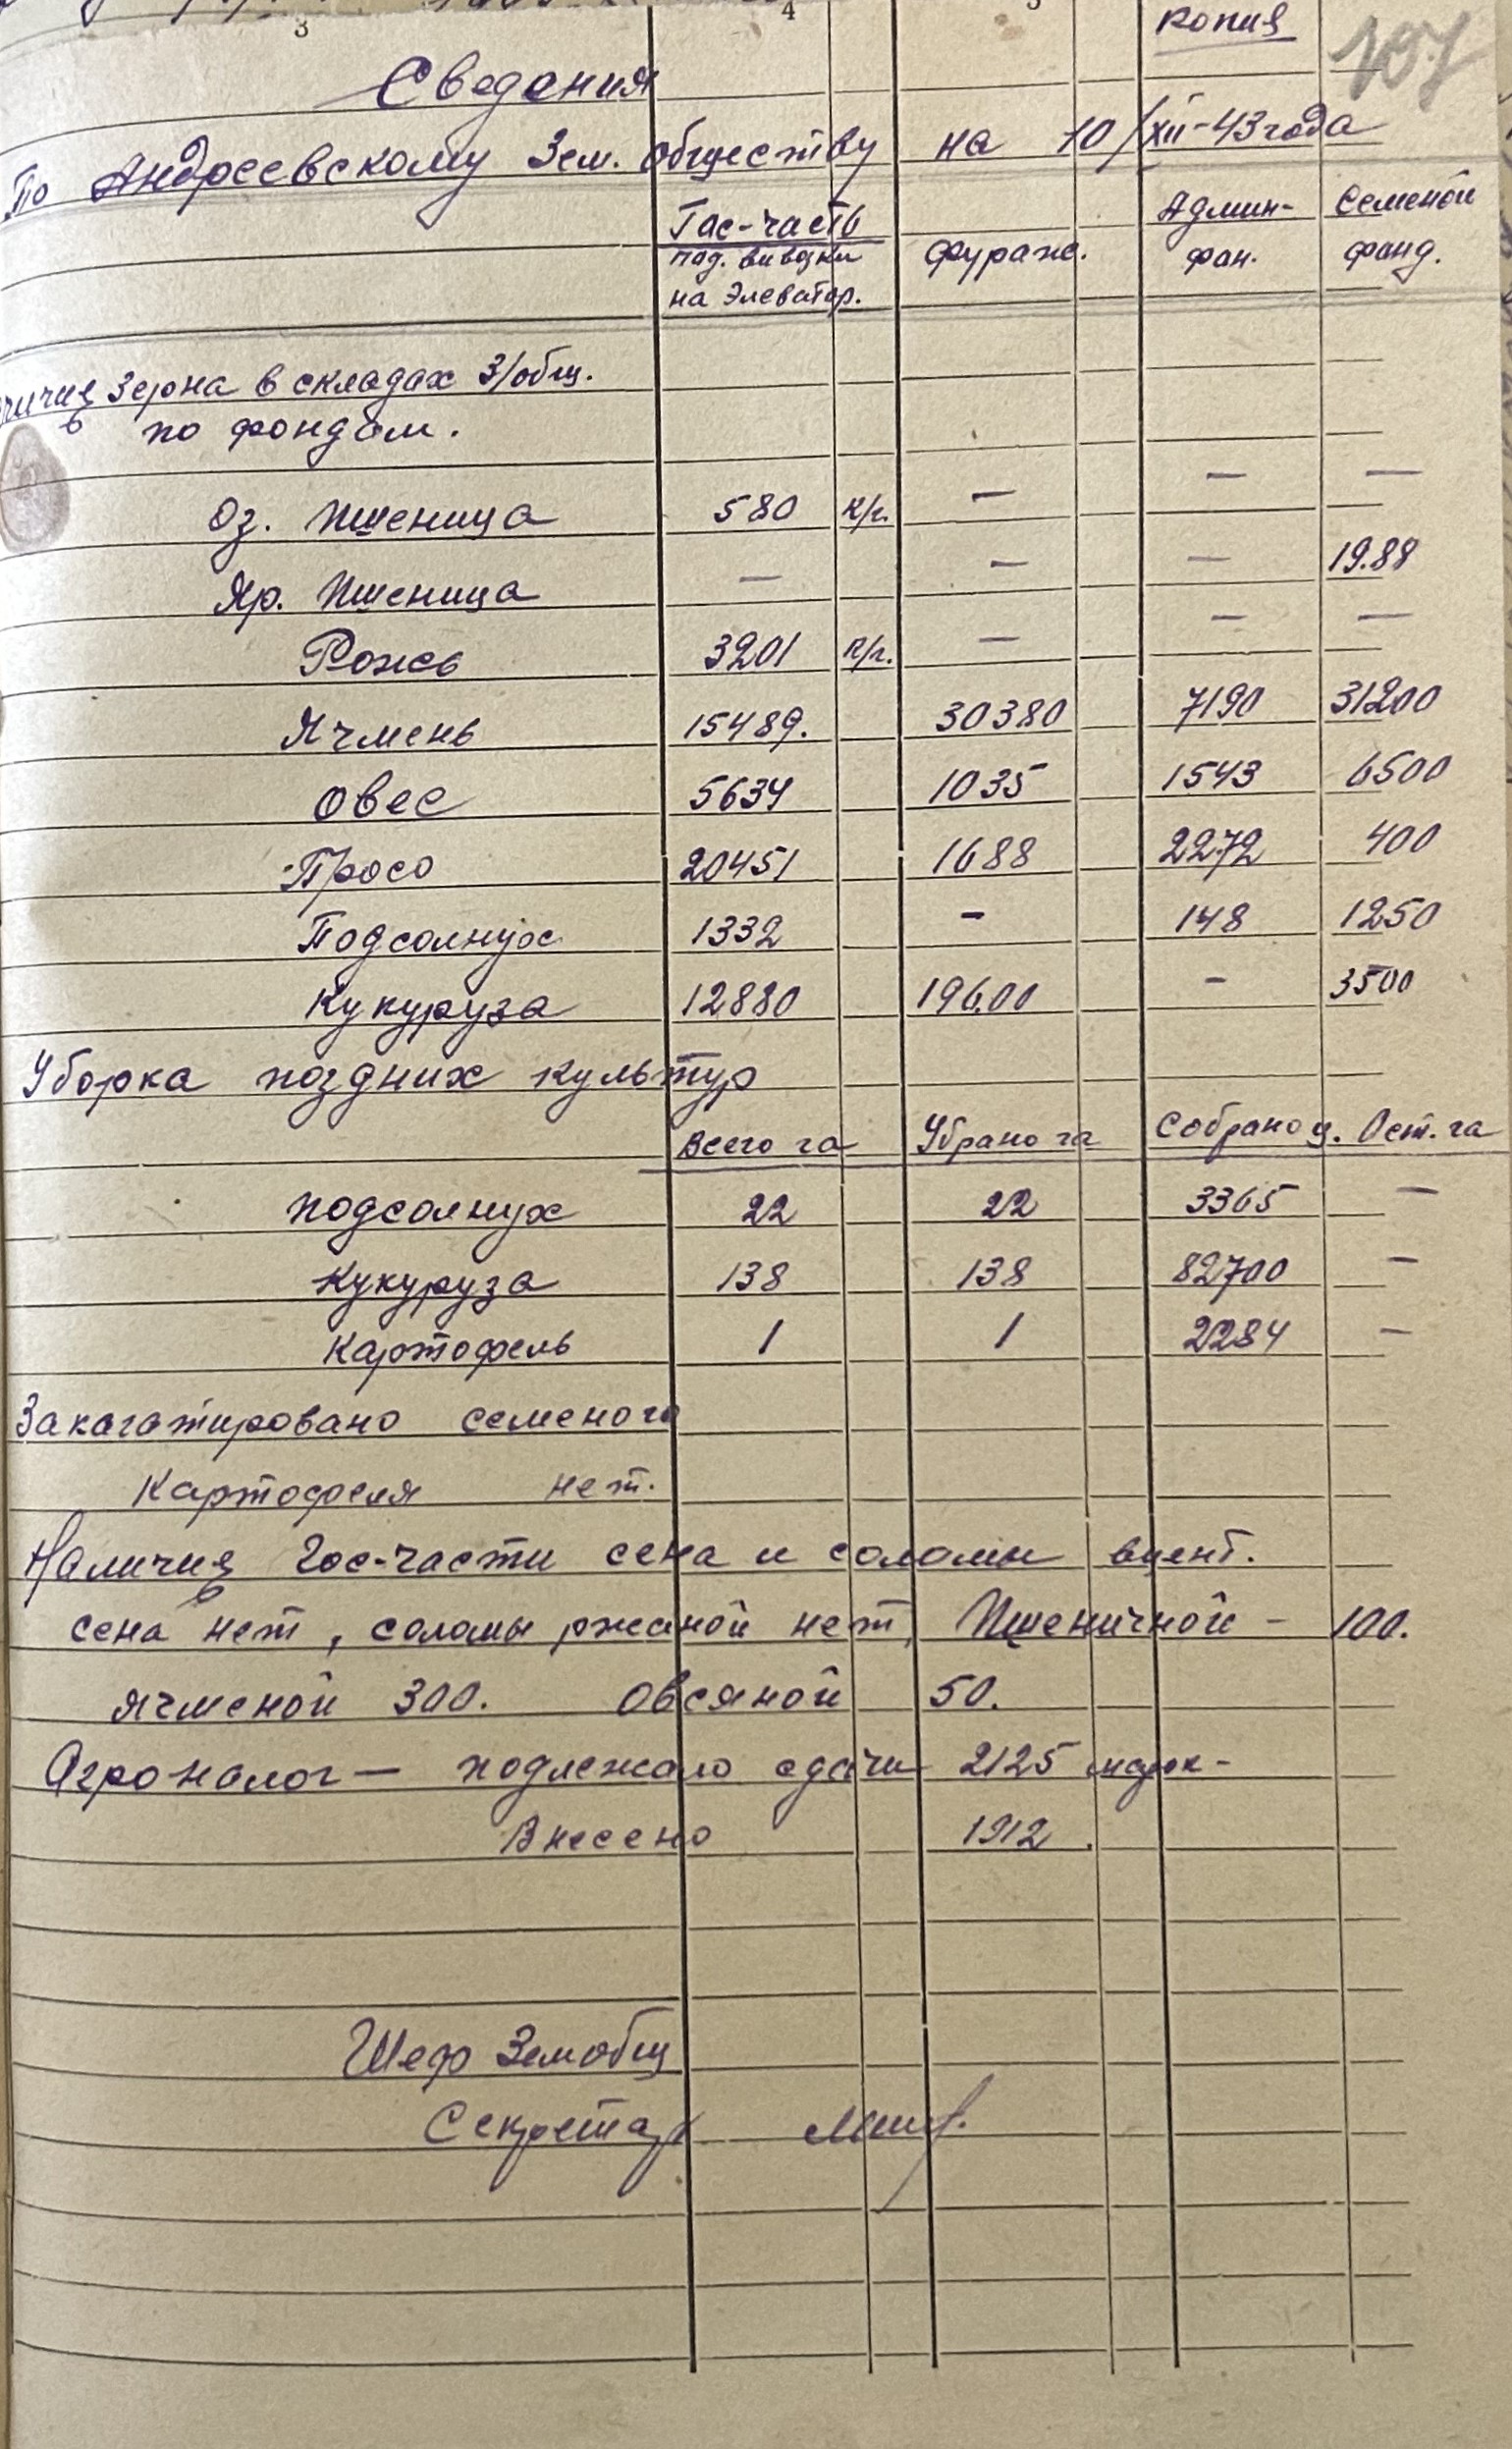 3 4 5
Копия
107
Сведения
По Андреевскому Зем. обществу на 10/XII-43 года
Гос-часть под. вивозки на Элеватор. Фураж. Админ-фон. Семеной фонд.
Зерна в складах З/общ.
по фондам.
Оз. Пшеница 580 к/г. — — —
Яр. Пшеница — — — 19.88
Рожь 3201 к/г. — — —
Ячмень 15489. 30380 7190 31200
Овес 5634 1035 1543 6500
Просо 20451 1688 2272 400
Подсолнух 1332 - 148 1250
Кукуруза 12880 19600 - 3500
Уборка поздних культур
Всего га Убрано га Собрано ц. Ост. га
Подсолнух 22 22 3365 —
Кукуруза 138 138 82700 —
Картофель 1 1 2284 —
Закагатировано семеного
Картофеля нет.
Наличия Гос-части сена и соломы вцент.
сена нет, соломы ржаной нет, Пшеничной - 100.
Ячменой 300. Овсяной 50.
Агроналог — подлежало сдачи 2125 марок-
Внесено 1912.
Шеф Земобщ
Секретарь